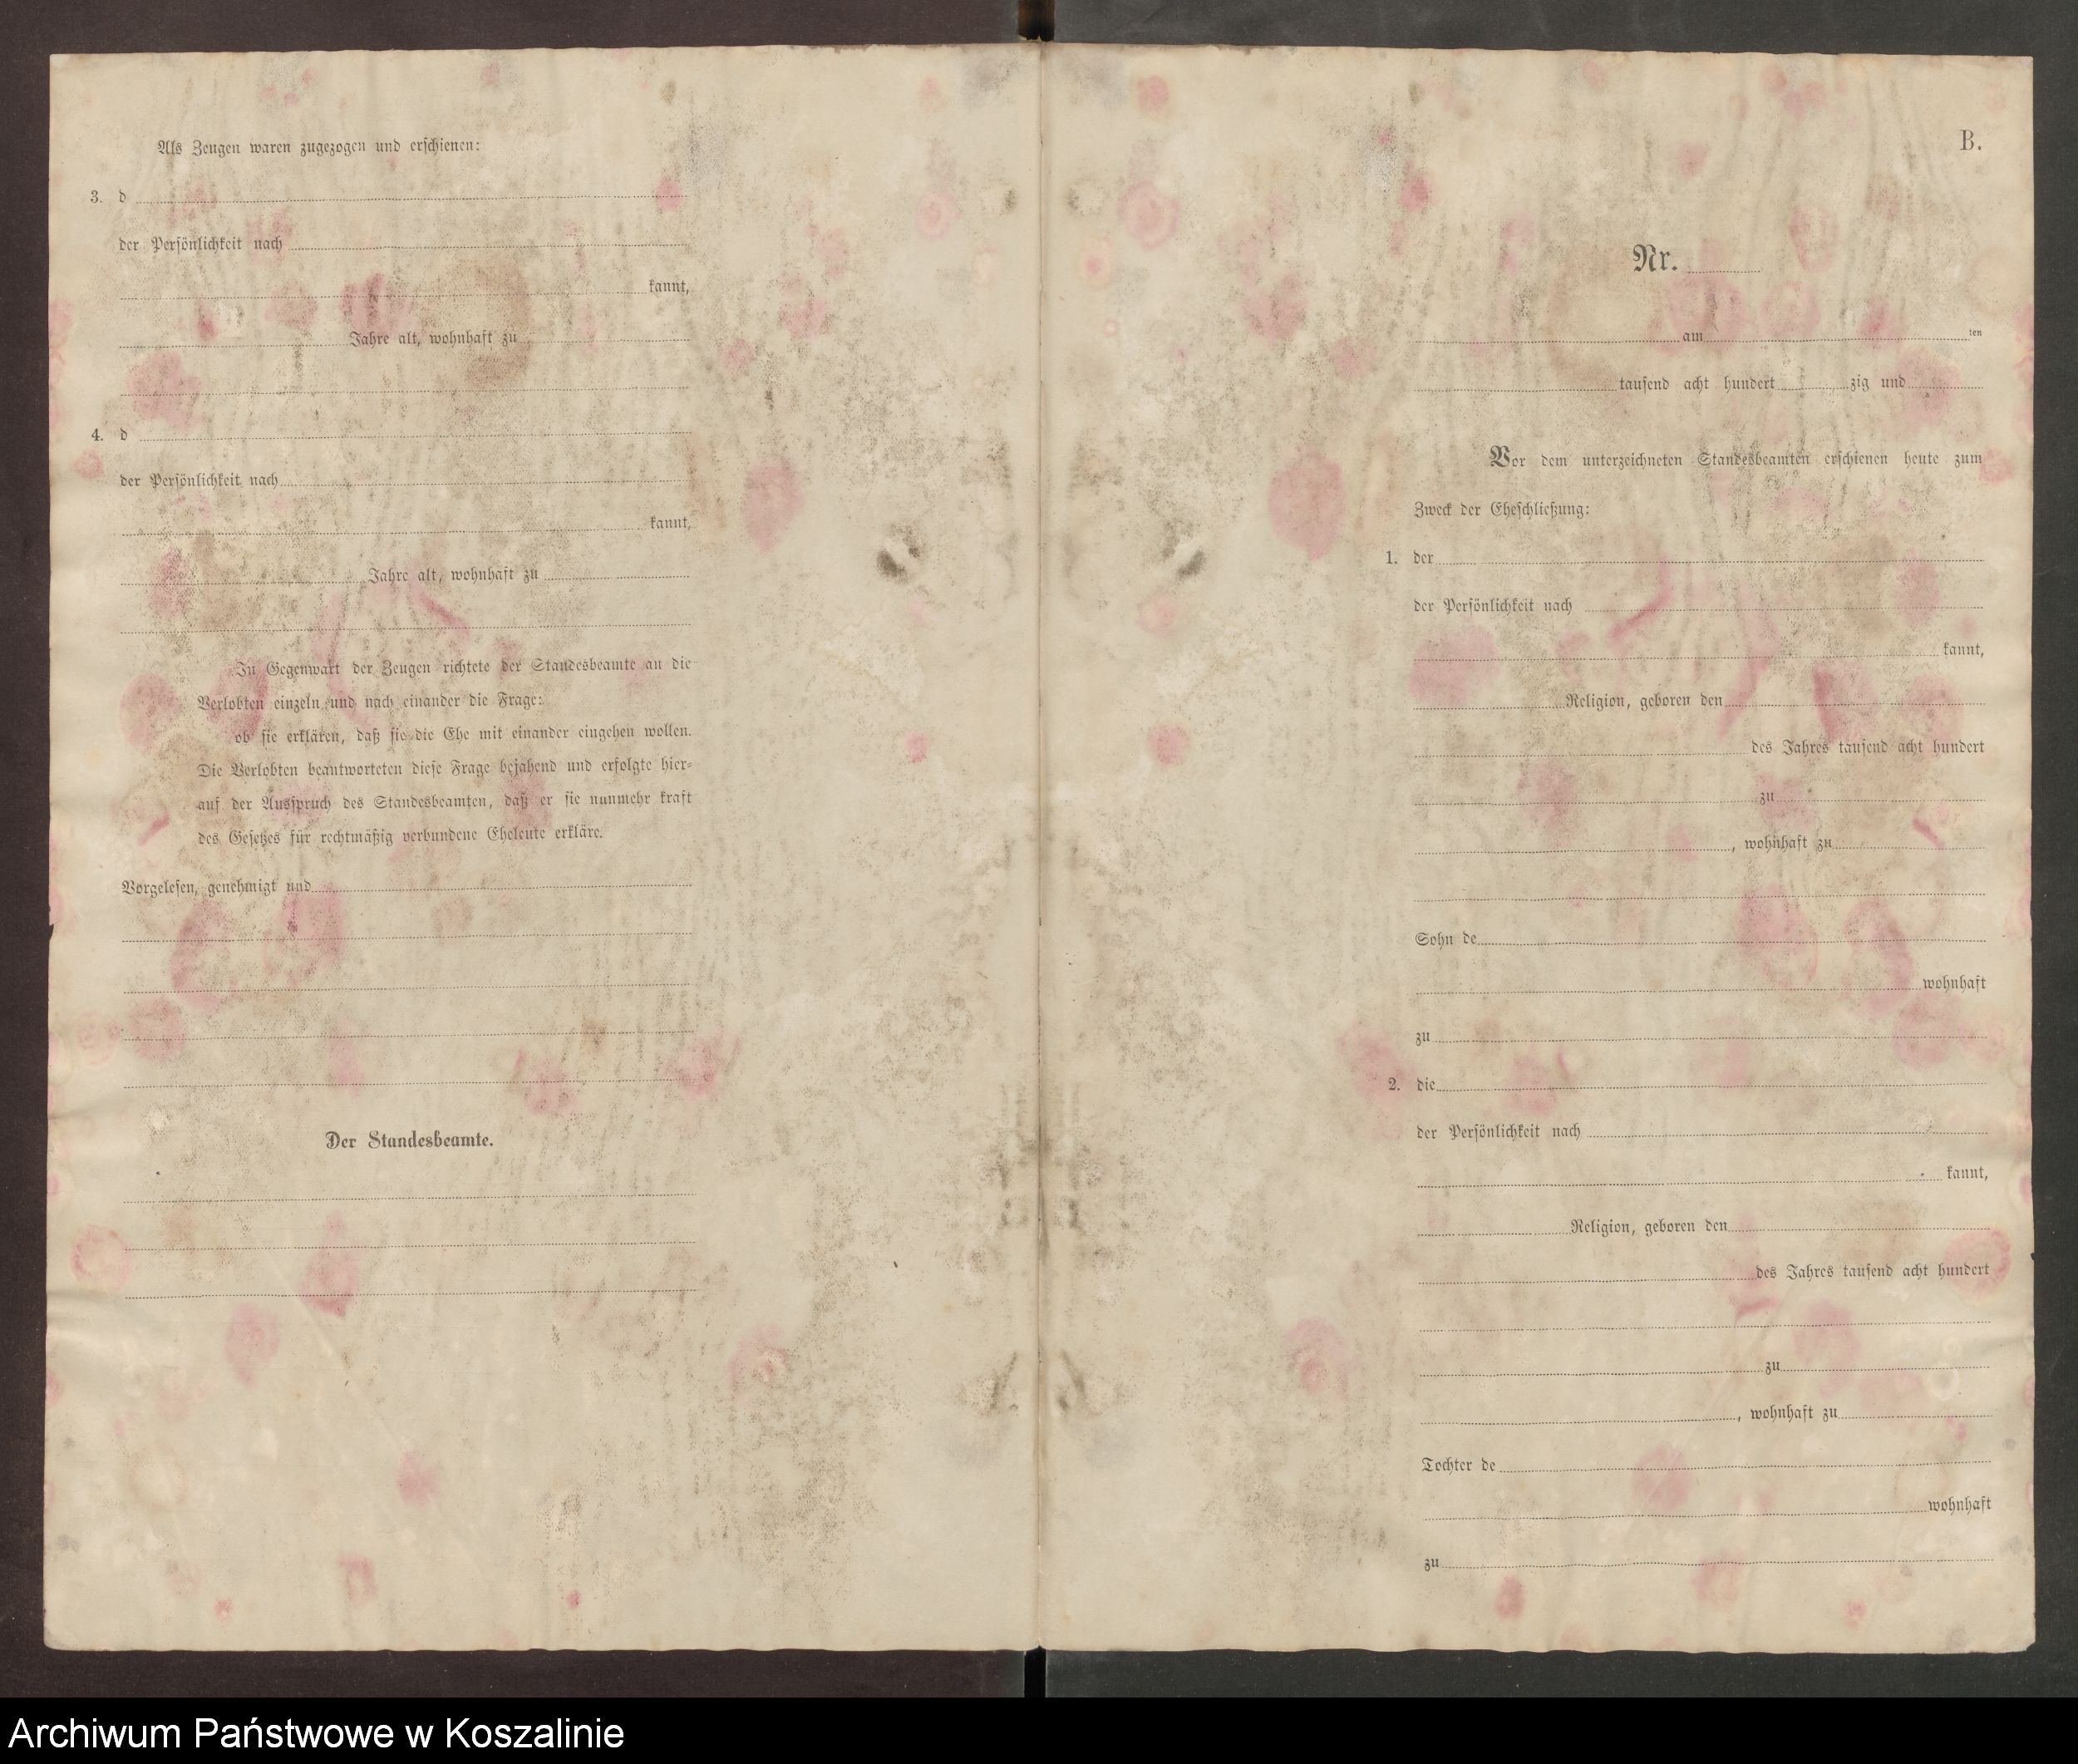 Als Zeugen waren zugezogen und erschienen:
3. d
der Persönlichkeit nach
kannt,
Jahre alt, wohnhaft zu
4. d
der Persönlichkeit nach
kannt,
Jahre alt, wohnhaft zu
In Gegenwart der Zeugen richtete der Standesbeamte an die
Verlobten einzeln und nach einander die Frage:
ob sie erklären, daß sie die Ehe mit einander eingehen wollen.
Die Verlobten beantworteten diese Frage bejahend und erfolgte hier-
auf der Ausspruch des Standesbeamten, daß er sie nunmehr kraft
des Gesetzes für rechtmäßig verbundene Eheleute erkläre.
Vorgelesen, genehmigt und
Der Standesbeamte.
B.
Nr.
am ten
tausend acht hundert zig und
Vor dem unterzeichneten Standesbeamten erschienen heute zum
Zweck der Eheschließung:
1. der
der Persönlichkeit nach
kannt,
Religion, geboren den
des Jahres tausend acht hundert
zu
, wohnhaft zu
Sohn de
wohnhaft
zu
2. die
der Persönlichkeit nach
kannt,
Religion, geboren den
des Jahres tausend acht hundert
zu
, wohnhaft zu
Tochter de
wohnhaft
zu
Archiwum Państwowe w Koszalinie